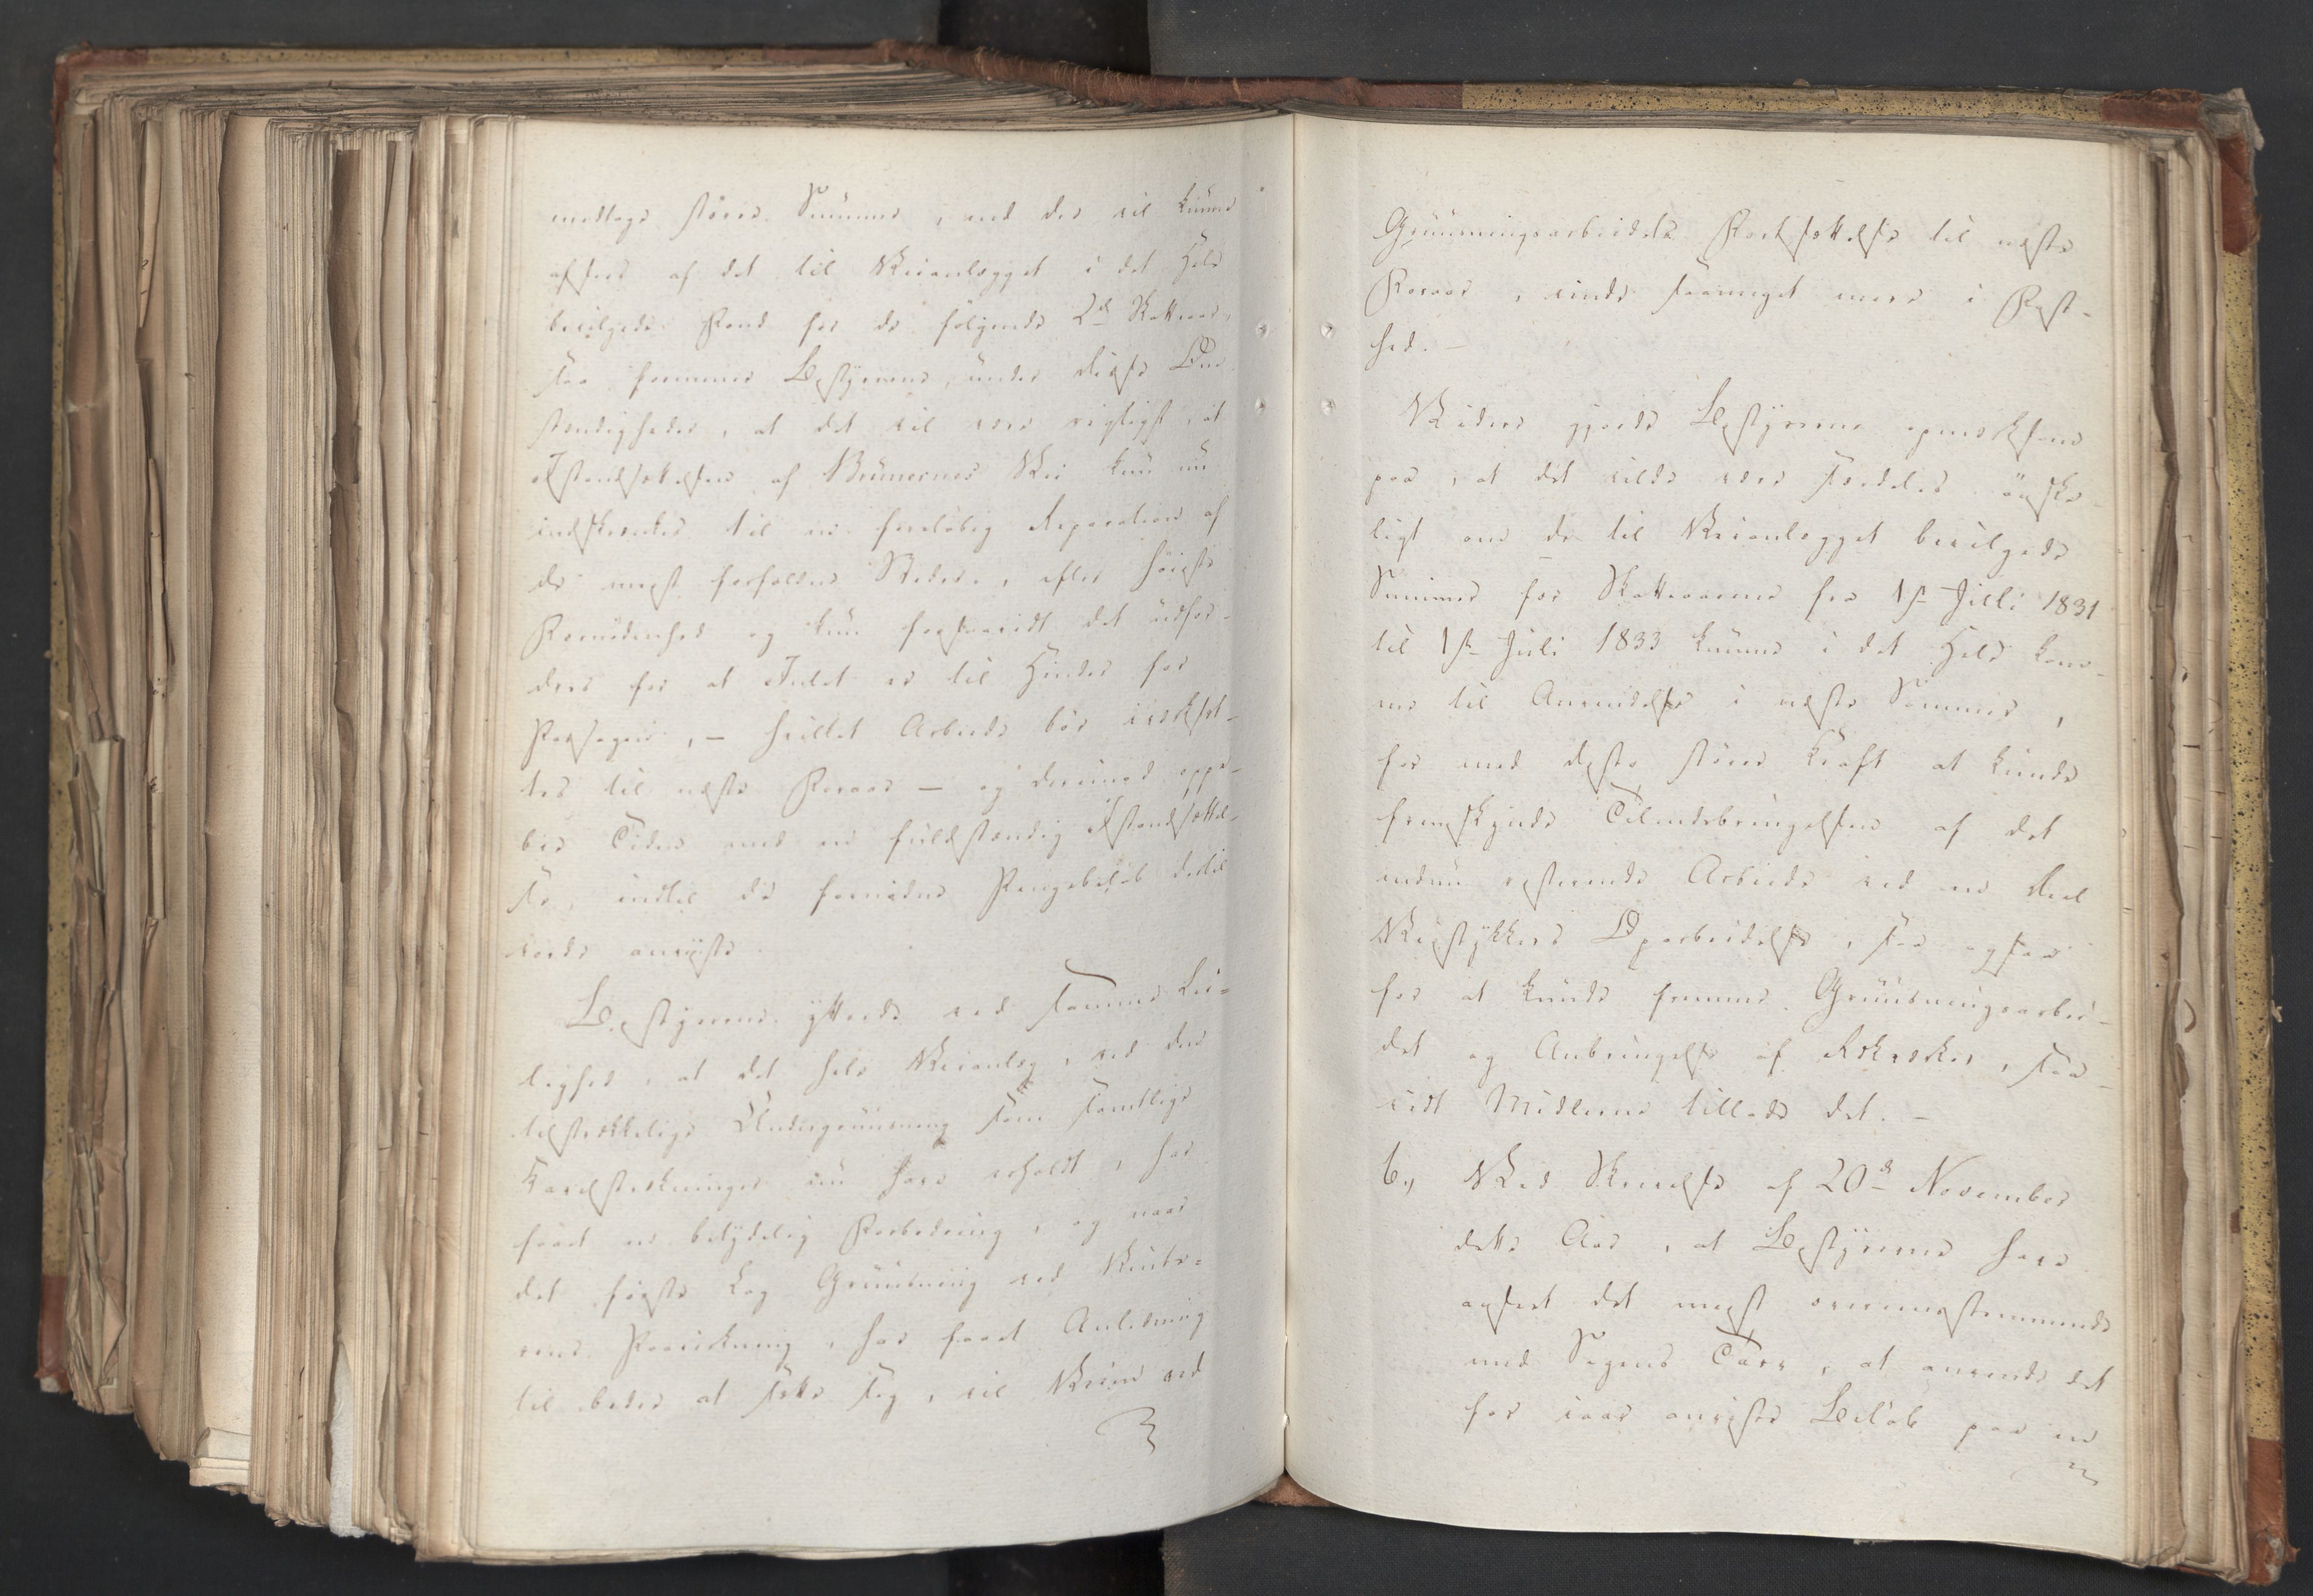 medtage større Summer, end der vil kunne
afsees af det til Veianlægget i det Hele
bevilgede Fond for de følgende 2de Skatteaar,
saa formener Bestyrerne, under disse Om-
stændigheder, at det vil være rigtigst, at
Istandsættelsen af Brümernes Vei kun nu
indskrænkes til en foreløbig Reparation af
de meest forfaldne Steder, efter høieste
Fornødenhed og kun forsaavidt det udfor-
dres for at Intet er til Hinder for
Passagen, – hvilket Arbeide bør iværksæt-
tes til næste Foraar – og derimod oppe-
bie Tiden med en fuldstændig Istandsættel-
se, indtil det fornødne Pengebeløb dertil
vorde anviiste
Bestyrerne yttrede ved samme Lei-
lighed, at det hele Veianlæg, ved den
tilstrækkelige Undergruusning som samtlige
Veistrækninger nu have erholdt, har
faaet en betydelig Forbedring, og naar
det første Lag Gruusning ved Vinte-
rens Paavirkning, har faaet Anledning
til bedre at sætte sig, vil Veien ved
Gruusningsarbeidets Fortsættelse til næste
Foraar, vinde saameget mere i Fast-
hed. –
Videre gjorde Bestyrerne opmærksom
paa, at det vilde være særdeles ønske-
ligt om de til Veianlægget bevilgede
Summer for Skatteaarene fra 1ste Julli 1831
til 1ste Juli 1833 kunne i det Hele kom-
me til Anvendelse i næste Sommer,
for med desto større Kraft at kunde
fremskynde Tilendebringelsen af det
endnu resterende Arbeide ved en Deel
Veistykkers Oparbeidelse, saa ogsaa
for at kunde fremme Gruusningsarbei-
det og Anbringelse af Rekværker, saa-
vidt Midlerne tillade det. –
b, Ved Skrivelse af 20de November
dette Aar, at Bestyrerne have
anseet det meest overeensstemmende
med Sagens Tarv, at anvende det
for iaar anviste Beløb paa en